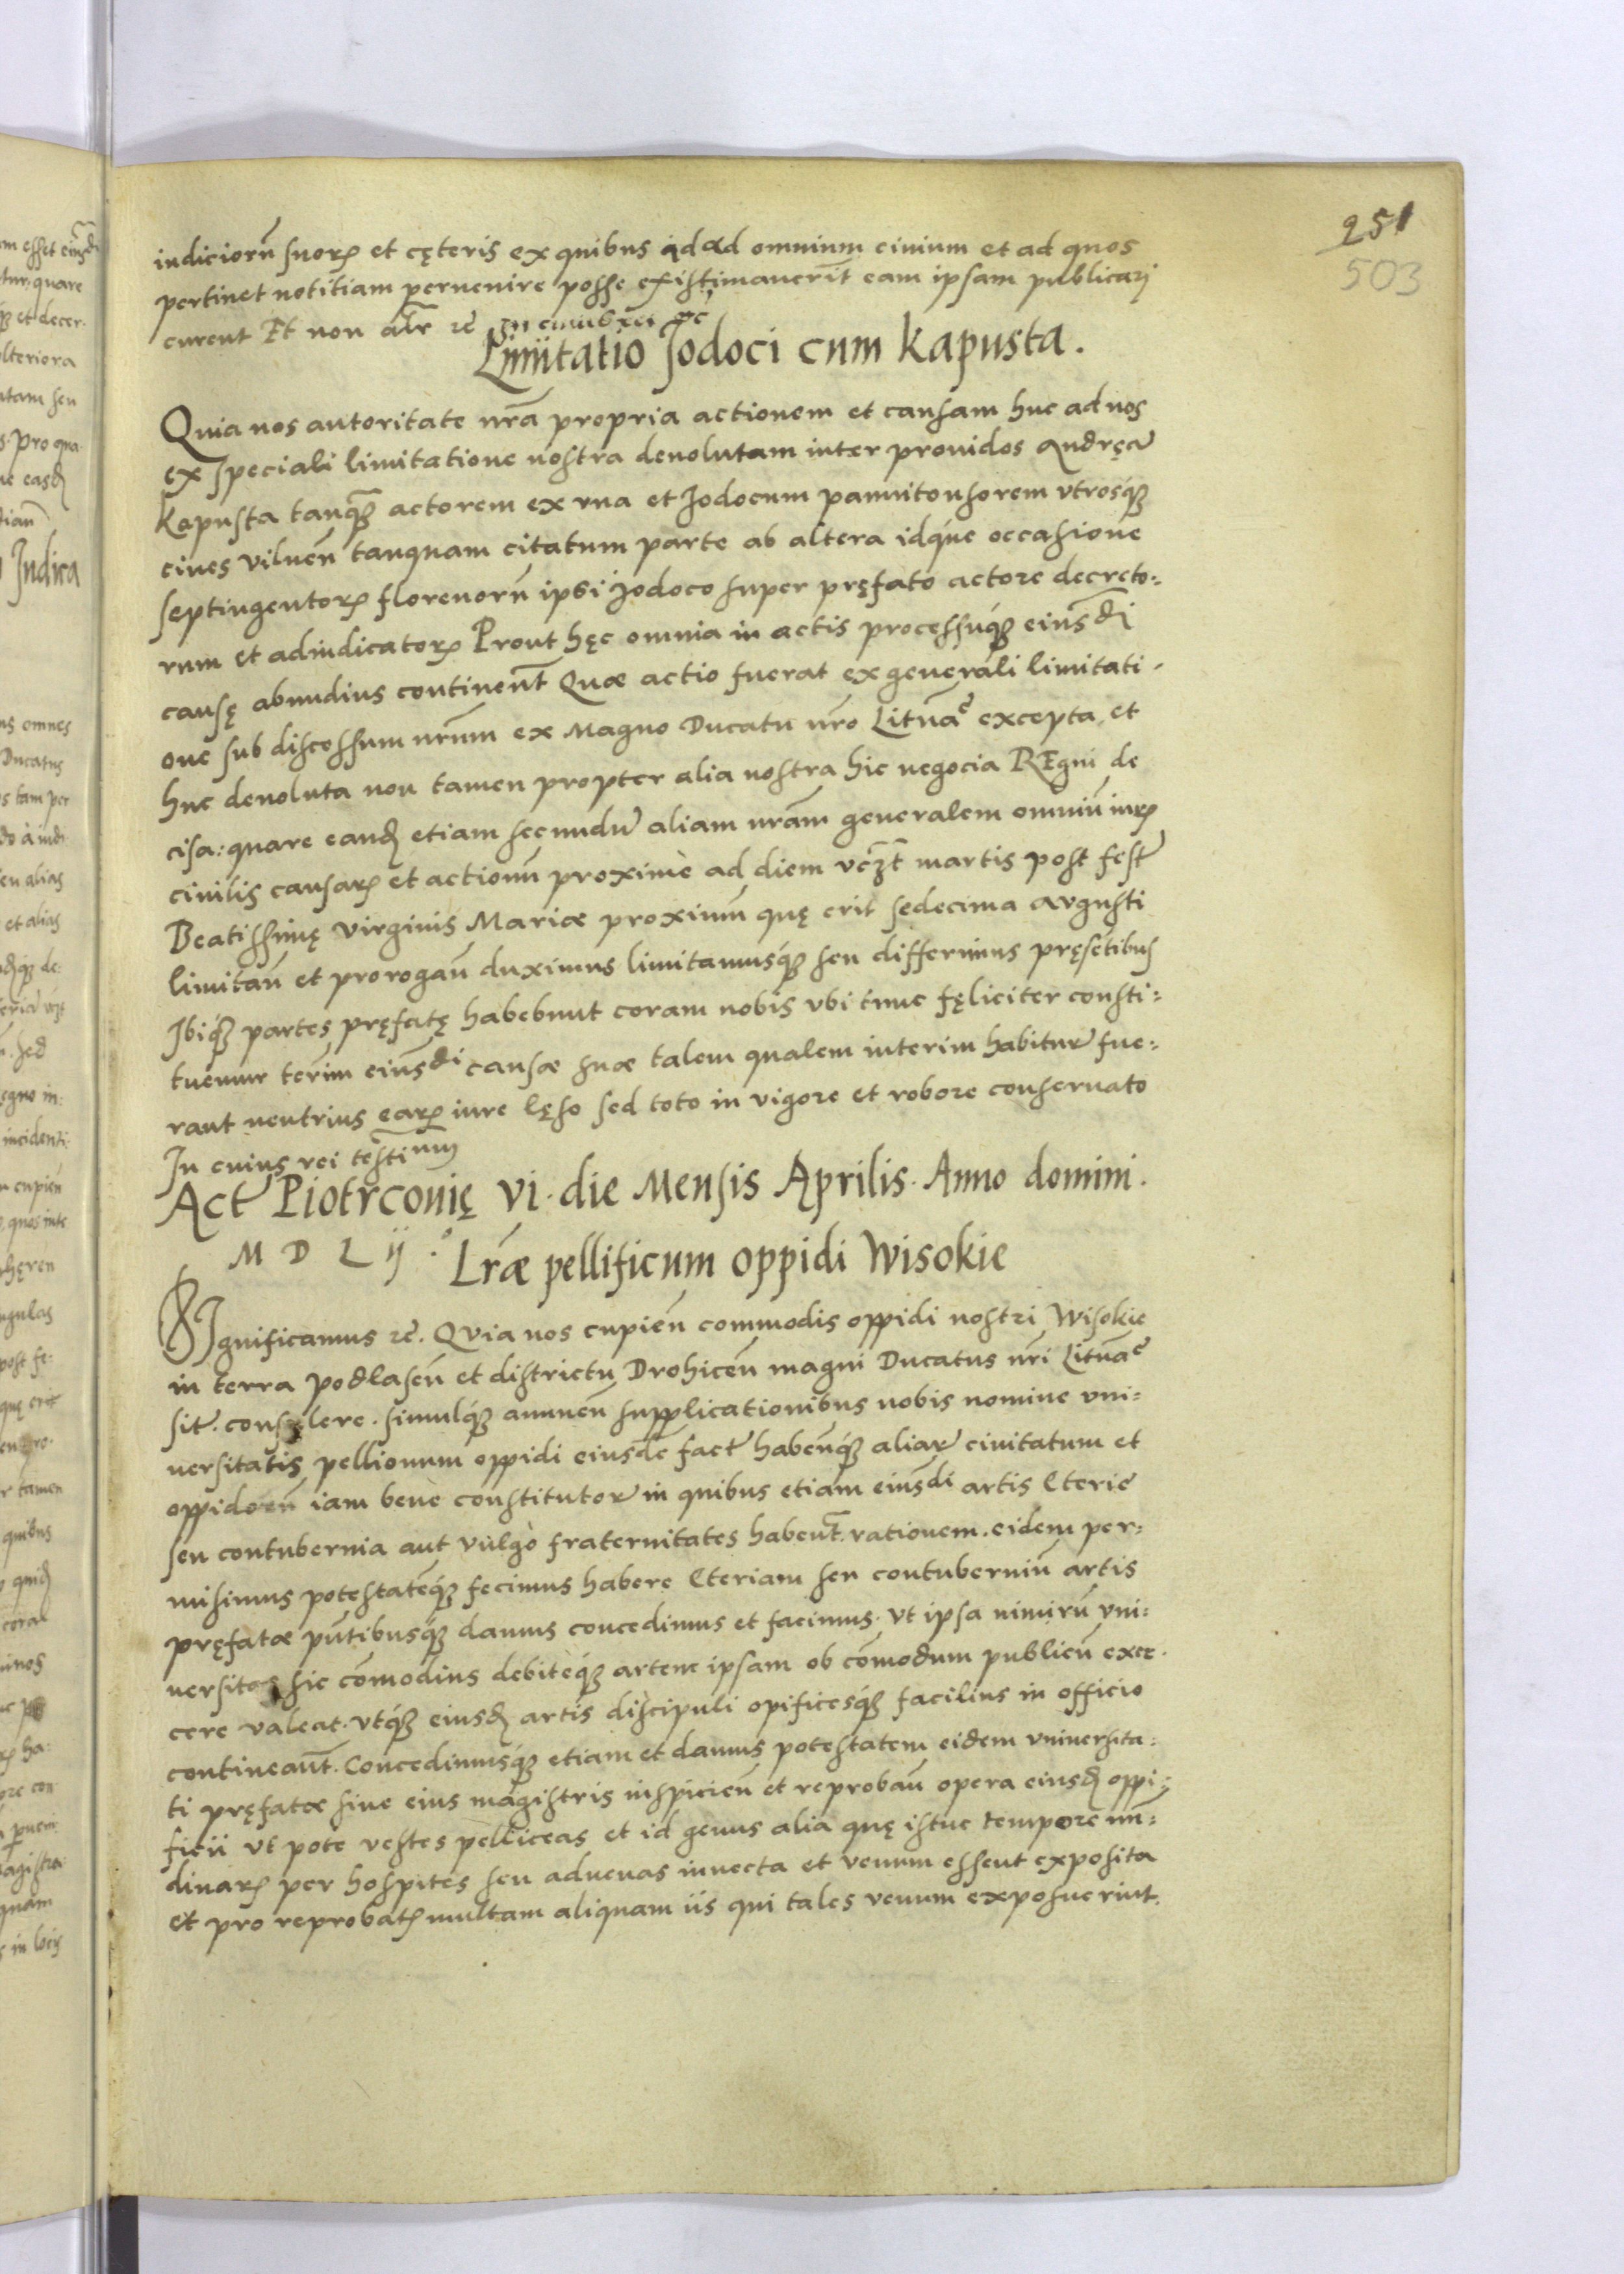 251
503
iudiciorũ suorꝝ et cęteris ex quibus id ad omnium ciuium et ad quos
pertinet notitiam peruenire posse existimauerit eam ipsam publicari
curent Et non alr̃ rẽ In cuius rei ꝛc
Limitatio Jodoci cum Kapusta.
Quia nos autoritate nr̃a propria actionem et causam huc ad nos
ex speciali limitatione nostra deuolutam inter prouidos Andręã
Kapusta tanqꝫ actorem ex vna et Jodocum pannitonsorem vtrosqꝫ
ciues vilneñ tanquam citatum parte ab altera idque occasione
septingentorꝝ florenorũ ipsi Jodoco super pręfato actore decreto=
rum et adiudicatorꝝ Prout hęc omnia in actis processuqꝫ eiusdi
causę abundius continenr̃ Quæ actio fuerat ex generali limitati-
one sub discessum nr̃um ex Magno Ducatu nr̃o Lituãe excepta et
huc deuoluta non tamen propter alia nostra hic negocia REgni de
cisa: quare eandꝫ etiam secundũ aliam nr̃am generalem omniũ iurꝝ
ciuilis causarꝝ et actionũ proxime ad diem vczt martis post festũ
Beatissimę virginis Mariæ proximũ quę erit sedecima Avgusti
limitañ et prorogañ duximus limitamusqꝫ seu differimus pręsẽtibus
Ibiqꝫ partes pręfatę habebunt coram nobis vbi tunc fęliciter consti=
tuemur ter̃im eiusdi causæ suæ talem qualem interim habiturę fue=
rant neutrius earꝝ iure lęso sed toto in vigore et robore conseruato
In cuius rei testim̃
Act̃ Piotrconię vi. die Mensis Aprilis. Anno domini.
M D L ij.° Lr̃æ pellificum oppidi Wisokie
SIgnificamus rẽ. Qvia nos cupieñ commodis oppidi nostri Wisokie
in terra Podlaseñ et districtu Drohiceñ magni Ducatus nr̃i Lituãe
sit̃. consulere. simulqꝫ annueñ supplicationibus nobis nomine vni=
uersitatis pellionum oppidi eiusdẽ fact̃ habeñqꝫ aliarꝝ ciuitatum et
oppidorũ iam bene constitutorꝝ in quibus etiam eiusdi artis Cteriẽ
seu contubernia aut vulgo fraternitates habenr̃. rationem. eidem per=
misimus potestatẽqꝫ fecimus habere Cteriam seu contuberniũ artis
pręfatæ pñtibusqꝫ damus concedimus et facimus. vt ipsa nimirũ vni=
uersitas sic cõmodius debiteqꝫ artem ipsam ob cõmodum publicũ exer-
cere valeat. vtqꝫ eiusdꝫ artis discipuli opificesqꝫ facilius in officio
contineanr̃. Concedimusqꝫ etiam et damus potestatem eidem vniuersita=
ti pręfatæ siue eius magistris inspicieñ et reprobañ opera eiusdꝫ oppi=
ficii vt pote vestes pelliceas et id genus alia quę istuc tempore nũ=
dinarꝝ per hospites seu aduenas inuecta et venum essent exposita
et pro reprobatꝫ multam aliquam iis qui tales venum exposuerint.